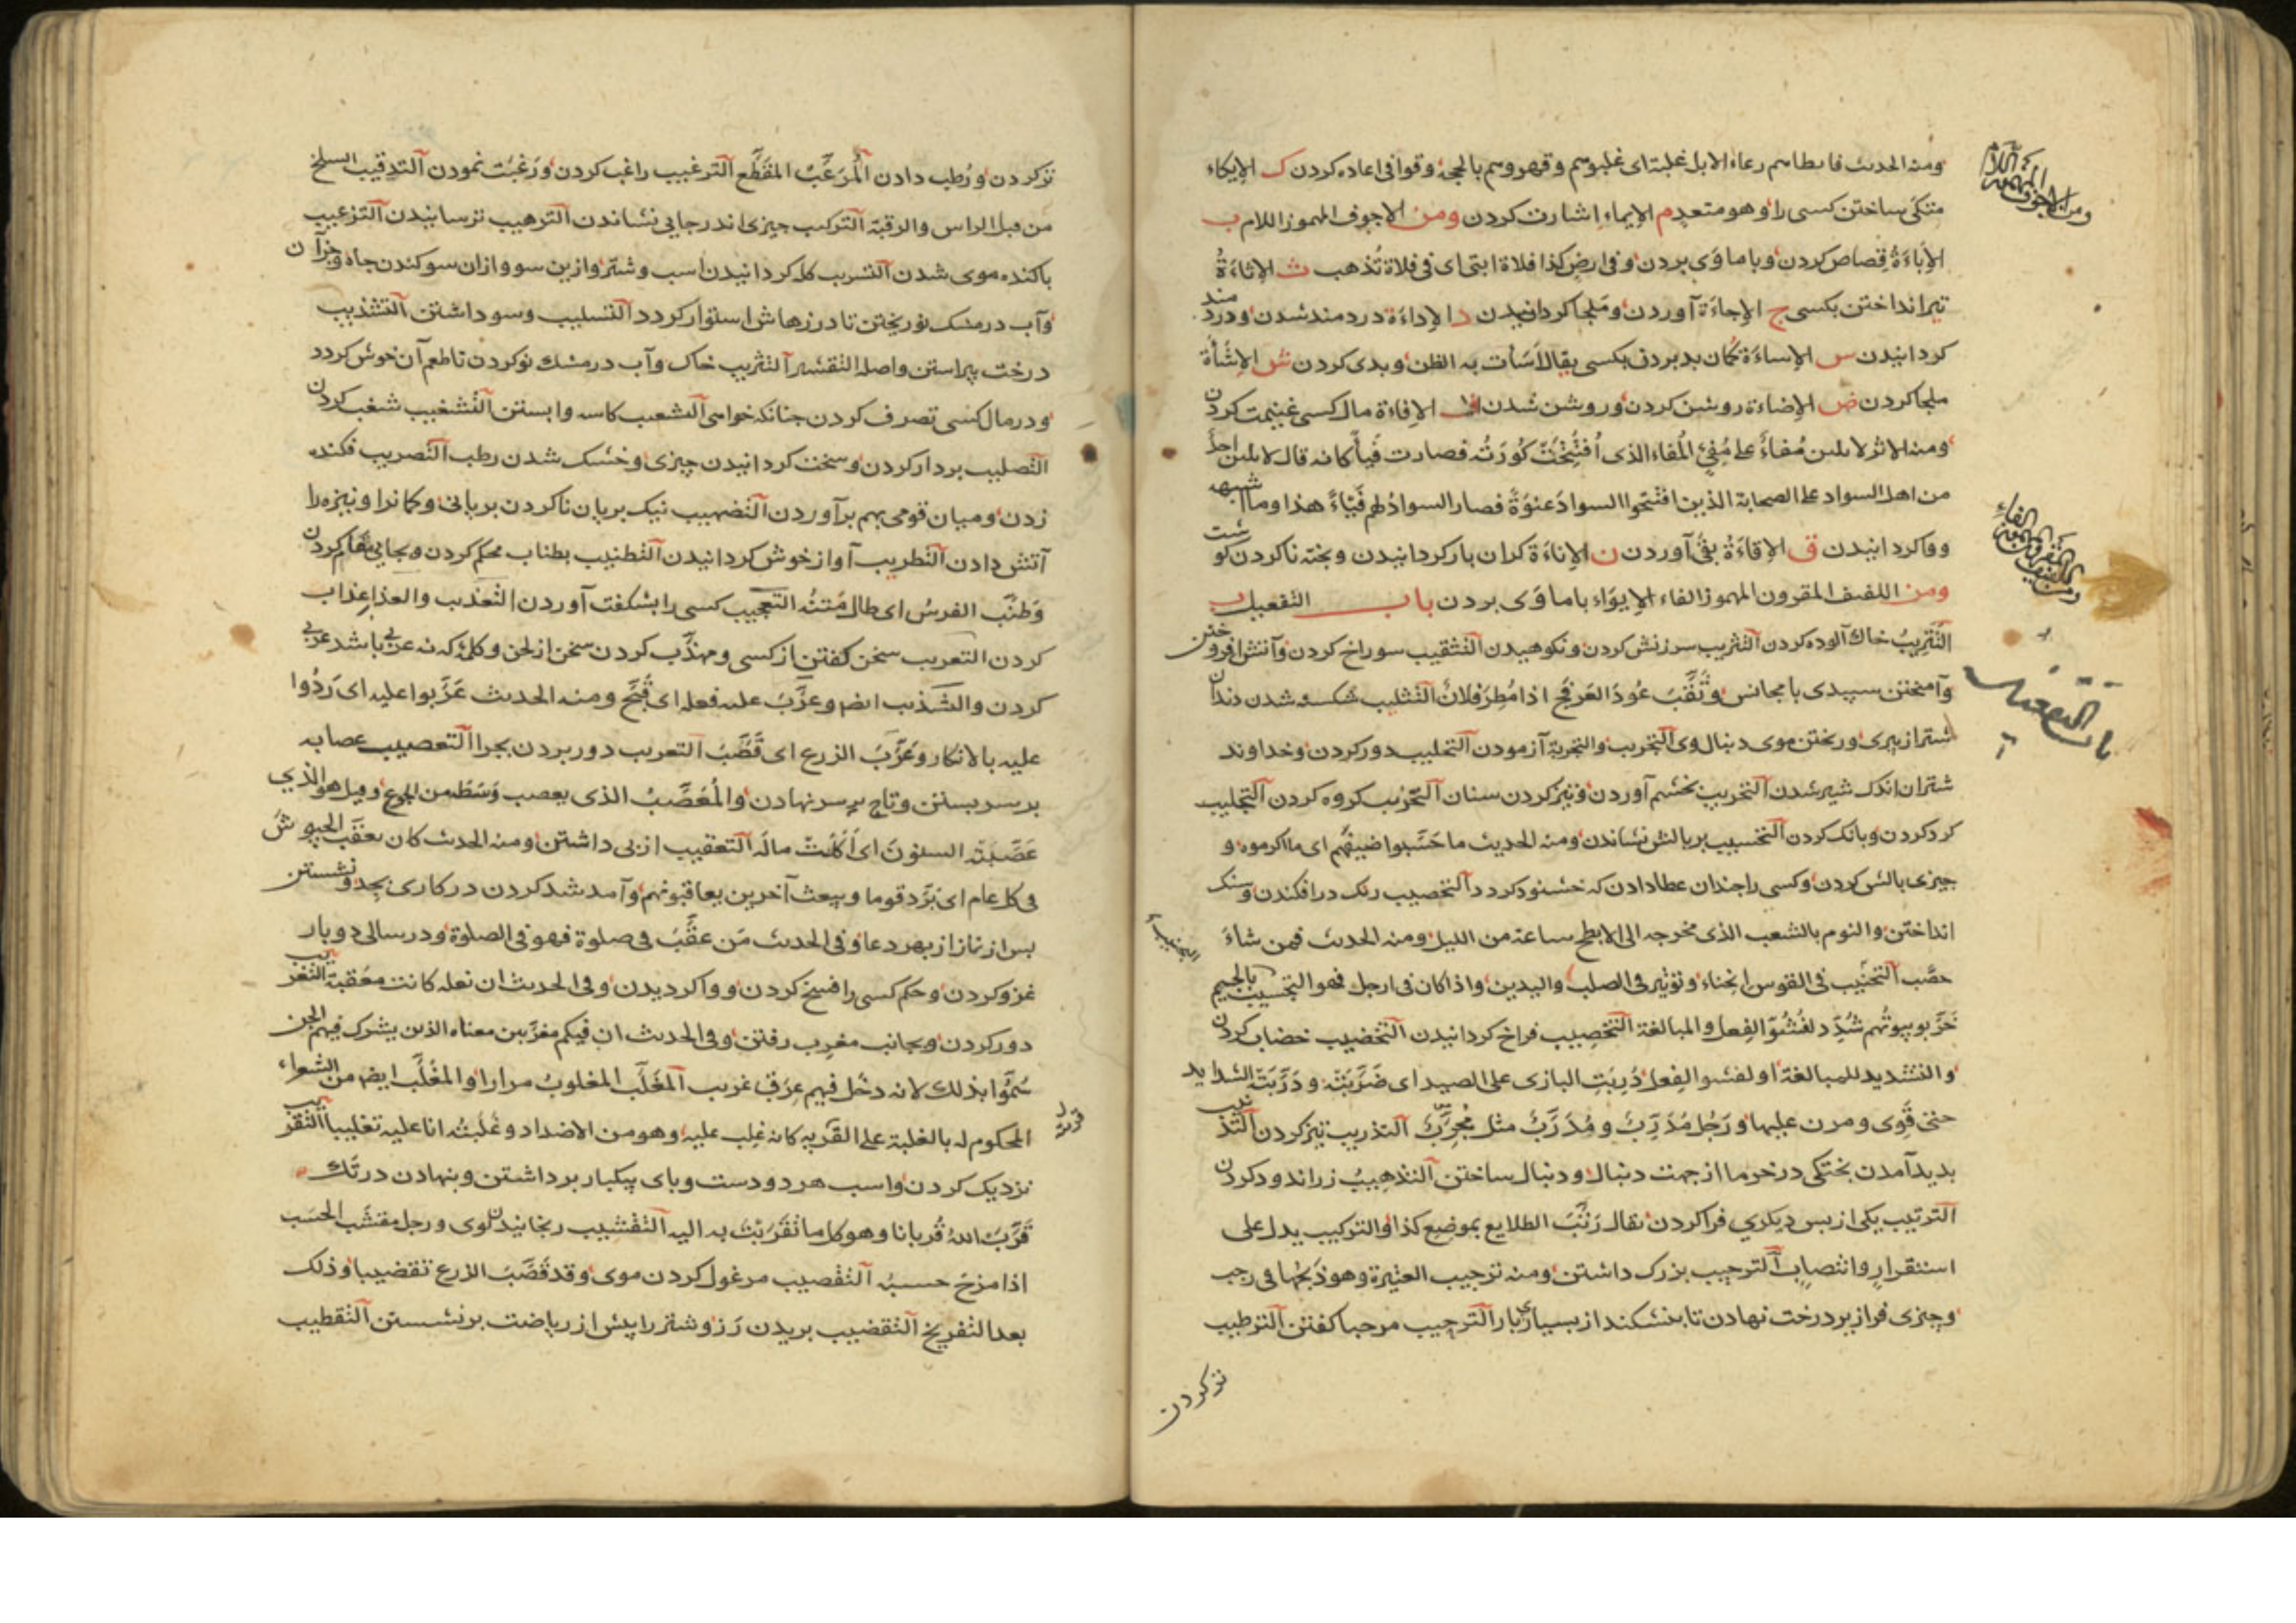 ومنه الحدیث رعاء الابل غلبة ای غلبوهم وقهروهم بالحجة وقوافی اعاده کردن ک الإیکاء
متکی ساختن کسی را وهو متعد م الإیماء اشارت کردن ومن الاجوف المهموز اللام ب
الإباءة قصاص کردن وبا ماوی بردن وفی ارض کذا فلاة ای فی فلاة تذهب ث الإثاءة
تیر انداختن بکسی ج الإجاءة آوردن وملجا کردانیدن د الإداءة دردمند شدن ودردمند
کردانیدن س الإساءة کمان بد بردن بکسی یقال اسأت به الظن وبدی کردن ش الإشاءة
ملجا کردن ض الإضاءة روشن کردن وروشن شدن ف الإفاءة مال کسی غنیمت کردن
ومنه الاثر لا یلین مفاء علی مفیء المفاء الذی افتتحت کورته فصارت فیأ کانه قال لا یلین احد
من اهل السواد علی الصحابة الذین افتتحوا السواد عنوة فصار السواد لهم فیئا هذا وما اشبهه
ووا کردانیدن ق الإقاءة بقی آوردن ن الإناءة کران بار کردانیدن وپخته ناکردن کوشت
ومن اللفیف المقرون المهموز الفاء الإیواء با ماوی بردن باب التفعیل ب
التتریب خاک آلوده کردن التثریب سرزنش کردن ونکوهیدن التثقیب سوراخ کردن وآتش افروختن
وآمیختن سپیدی با وثقب عود العرفج اذا مطر فلان التثلیب شکسته شدن دندان
اشتر از پیری وریختن موی دنبال وی التجریب والتجربة آزمودن التجلیب دور کردن وخداوند
شتران اندک شیر شدن التحریب بخشم آوردن وتیز کردن سنان التحزیب کروه کردن التجلیب
کرد کردن وبانک کردن التحسیب بر بالش نشاندن ومنه الحدیث ما حسبوا ضیفهم ای ما اکرموه و
چیزی بالش کردن وکسی را چندان عطا دادن که خشنود کردد التحصیب ریک درافکندن وسنک
انداختن والنوم بالشعب الذی مخرجه الی الابطح ساعة من اللیل ومنه الحدیث فمن شاء
حصب التحنیب فی القوس انحناء وتوتیر فی الصلب والیدین واذا کان فی ارجل فهو التجنیب بالجیم
خربو بیوتهم شدد لفشو الفعل والمبالغة التخصیب فراخ کردانیدن التخضیب خضاب کردن
والتشدید للمبالغة او لفشو الفعل دربت البازی علی الصید ای ضربته ودربته الشداید
حتی قوی ومرن علیها ورجل مدرب ومدرب مثل مجرب التذریب تیز کردن التذنیب
بدید آمدن پختکی در خرما از جهت دنبال ودنبال ساختن التذهیب زر اندود کردن
الترتیب یکی از پس دیکری فرا کردن یقال رتب الطلایع بموضع کذا والترکیب یدل علی
استقرار وانتصاب الترجیب بزرک داشتن ومنه ترجیب العتیرة وهو ذبحها فی رجب
وچیزی فرا زیر درخت نهادن تا بنشکند از بسیاری بار الترحیب مرحبا کفتن الترطیب
تر کردن
باب التفعیل
تر کردن ورطب دادن المرعب المقطع الترغیب راغب کردن ورغبت نمودن السلخ
من قبل الراس والرقبة الترکیب چیزی اندر جایی نشاندن الترهیب ترسانیدن التزغیب
باکنده موی شدن التسریب کله کردانیدن اسب وشتر وازین سو وازان سو کندن چاه وجز آن
وآب در مشک نو ریختن تا درزهاش استوار کردد التسلیب وسو داشتن التشذیب
درخت پیراستن واصله التقشیر التشریب خاک وآب در مشک نو کردن تا طعم آن خوش کردد
ودر مال کسی تصرف کردن چنانکه خواهی التشعیب کاسه وا بستن التشغیب شغب کردن
التصلیب بر دار کردن وسخت کردانیدن چیزی وخشک شدن رطب التضریب فکنده
زدن ومیان قومی بهم برآوردن التضهیب نیک بریان ناکردن بریانی وکمان را ونیزه را
آتش دادن التطریب آواز خوش کردانیدن التطنیب بطناب محکم کردن وبجایی مقام کردن
وطنب الفرس ای طال متنه التعجیب کسی را بشکفت آوردن التعذیب والعذاب عذاب
کردن التعریب سخن کفتن از کسی ومهذب کردن سخن از لحن وکلمه که نه عربی باشد عربی
کردن والتشذیب ایضا وعرب علیه فعله ای قبح ومنه الحدیث عربوا علیه ای ردوا
علیه بالانکار وعرب الزرع ای قضب التعزیب دور بردن بچرا التعصیب عصابه
بر سر بستن وتاج بر سر نهادن والمعصب الذی یعصب وسطه من الجوع وقیل هو الذی
عصبته السنون ای اکلت ماله التعقیب از پی داشتن ومنه الحدیث کان یعقب الجیوش
فی کل عام ای یرد قوما ویبعث آخرین یعاقبونهم وآمد شد کردن در کاری بجد ونشستن
پس از نماز از بهر دعا وفی الحدیث من عقب فی صلوة فهو فی الصلوة ودر سالی دو بار
غزو کردن وحکم کسی را فسخ کردن ووا کردیدن وفی الحدیث ان نعله کانت معقبة التغریب
دور کردن وبجانب مغرب رفتن وفی الحدیث ان فیکم مغربین معناه الذین یشرک فیهم الجن
سموا بذلک لانه دخل فیهم عرق غریب المغلب المغلوب مرارا والمغلب ایضا من الشعراء
المحکوم له بالغلبة علی القریه کانه غلب علیه وهو من الاضداد وغلبته انا علیه تغلیبا التقریب
نزدیک کردن واسب هر دو دست وپای بیکبار برداشتن وبنهادن در تک
قرب الله قربانا وهو کل ما تقربت به الیه التقشیب رنجانیدن لوی ورجل مقشب الحسب
اذا مزج حسبه التقصیب مرغول کردن موی وقد قصب الزرع تقصیبا وذلک
بعد التفریخ التقضیب بریدن رز وشتر را پیش از ریاضت برنشستن التقطیب